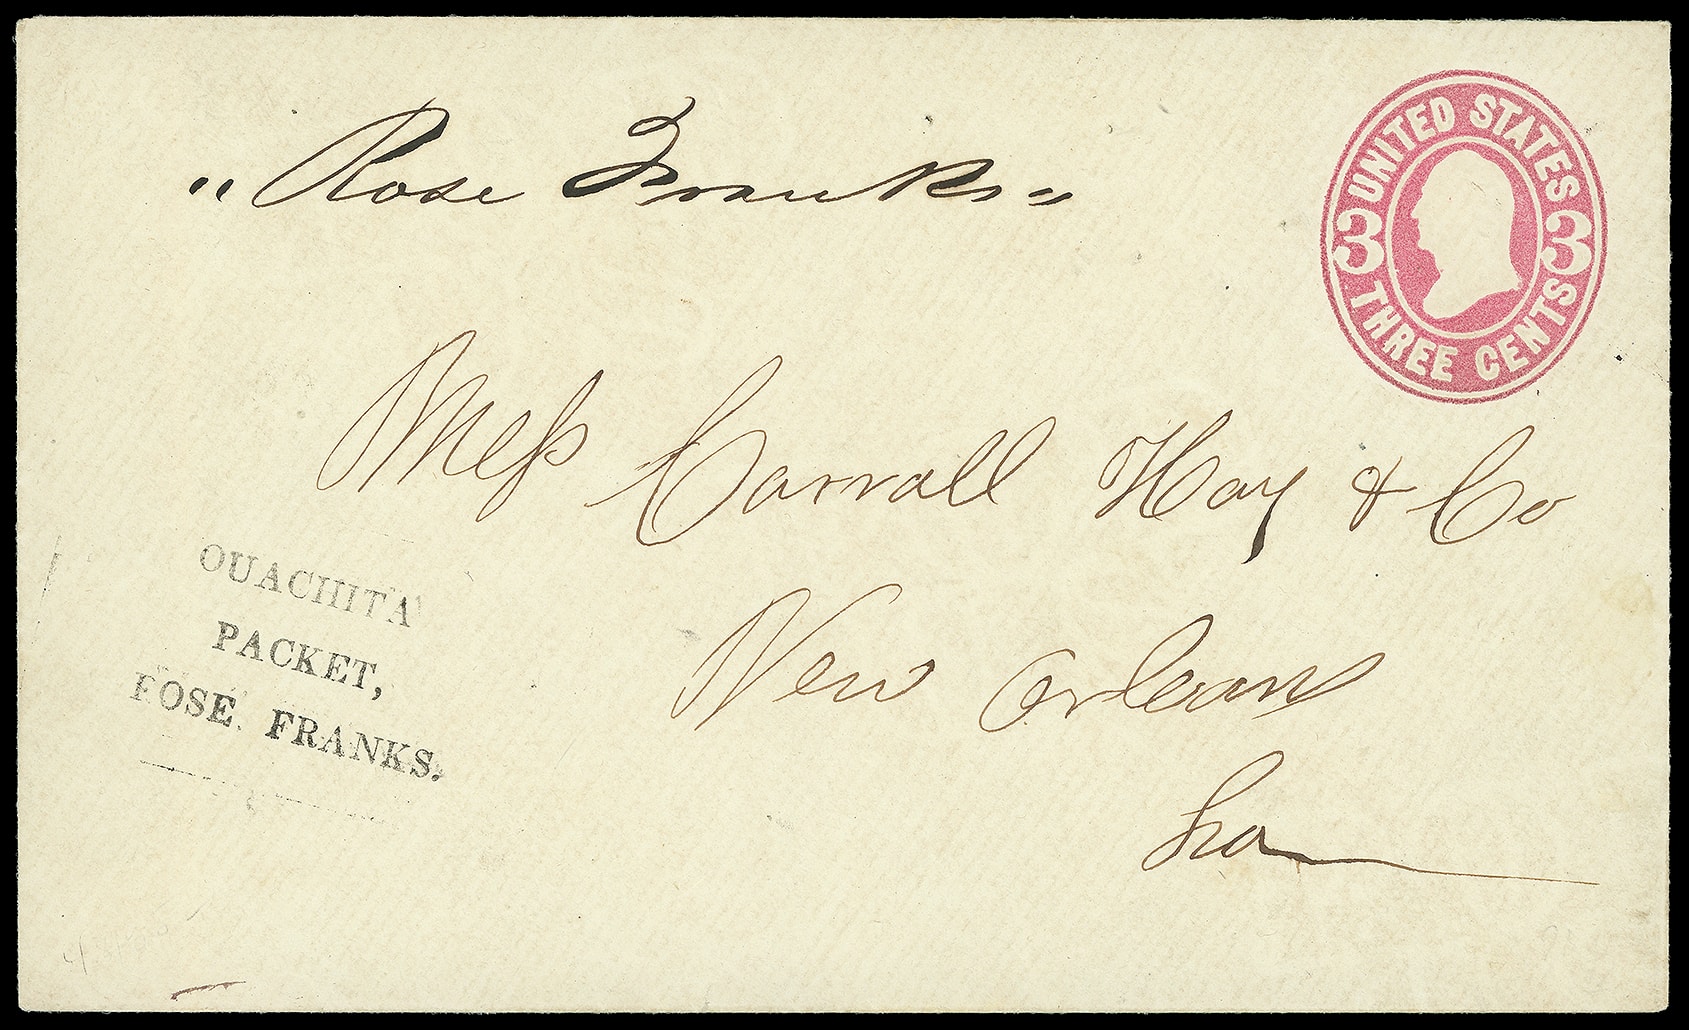 "Rose Franks"
UNITED STATES
3 3
THREE CENTS
Mess Carroll Hoy & Co
New Orleans
La
OUACHITA
PACKET,
ROSE. FRANKS.